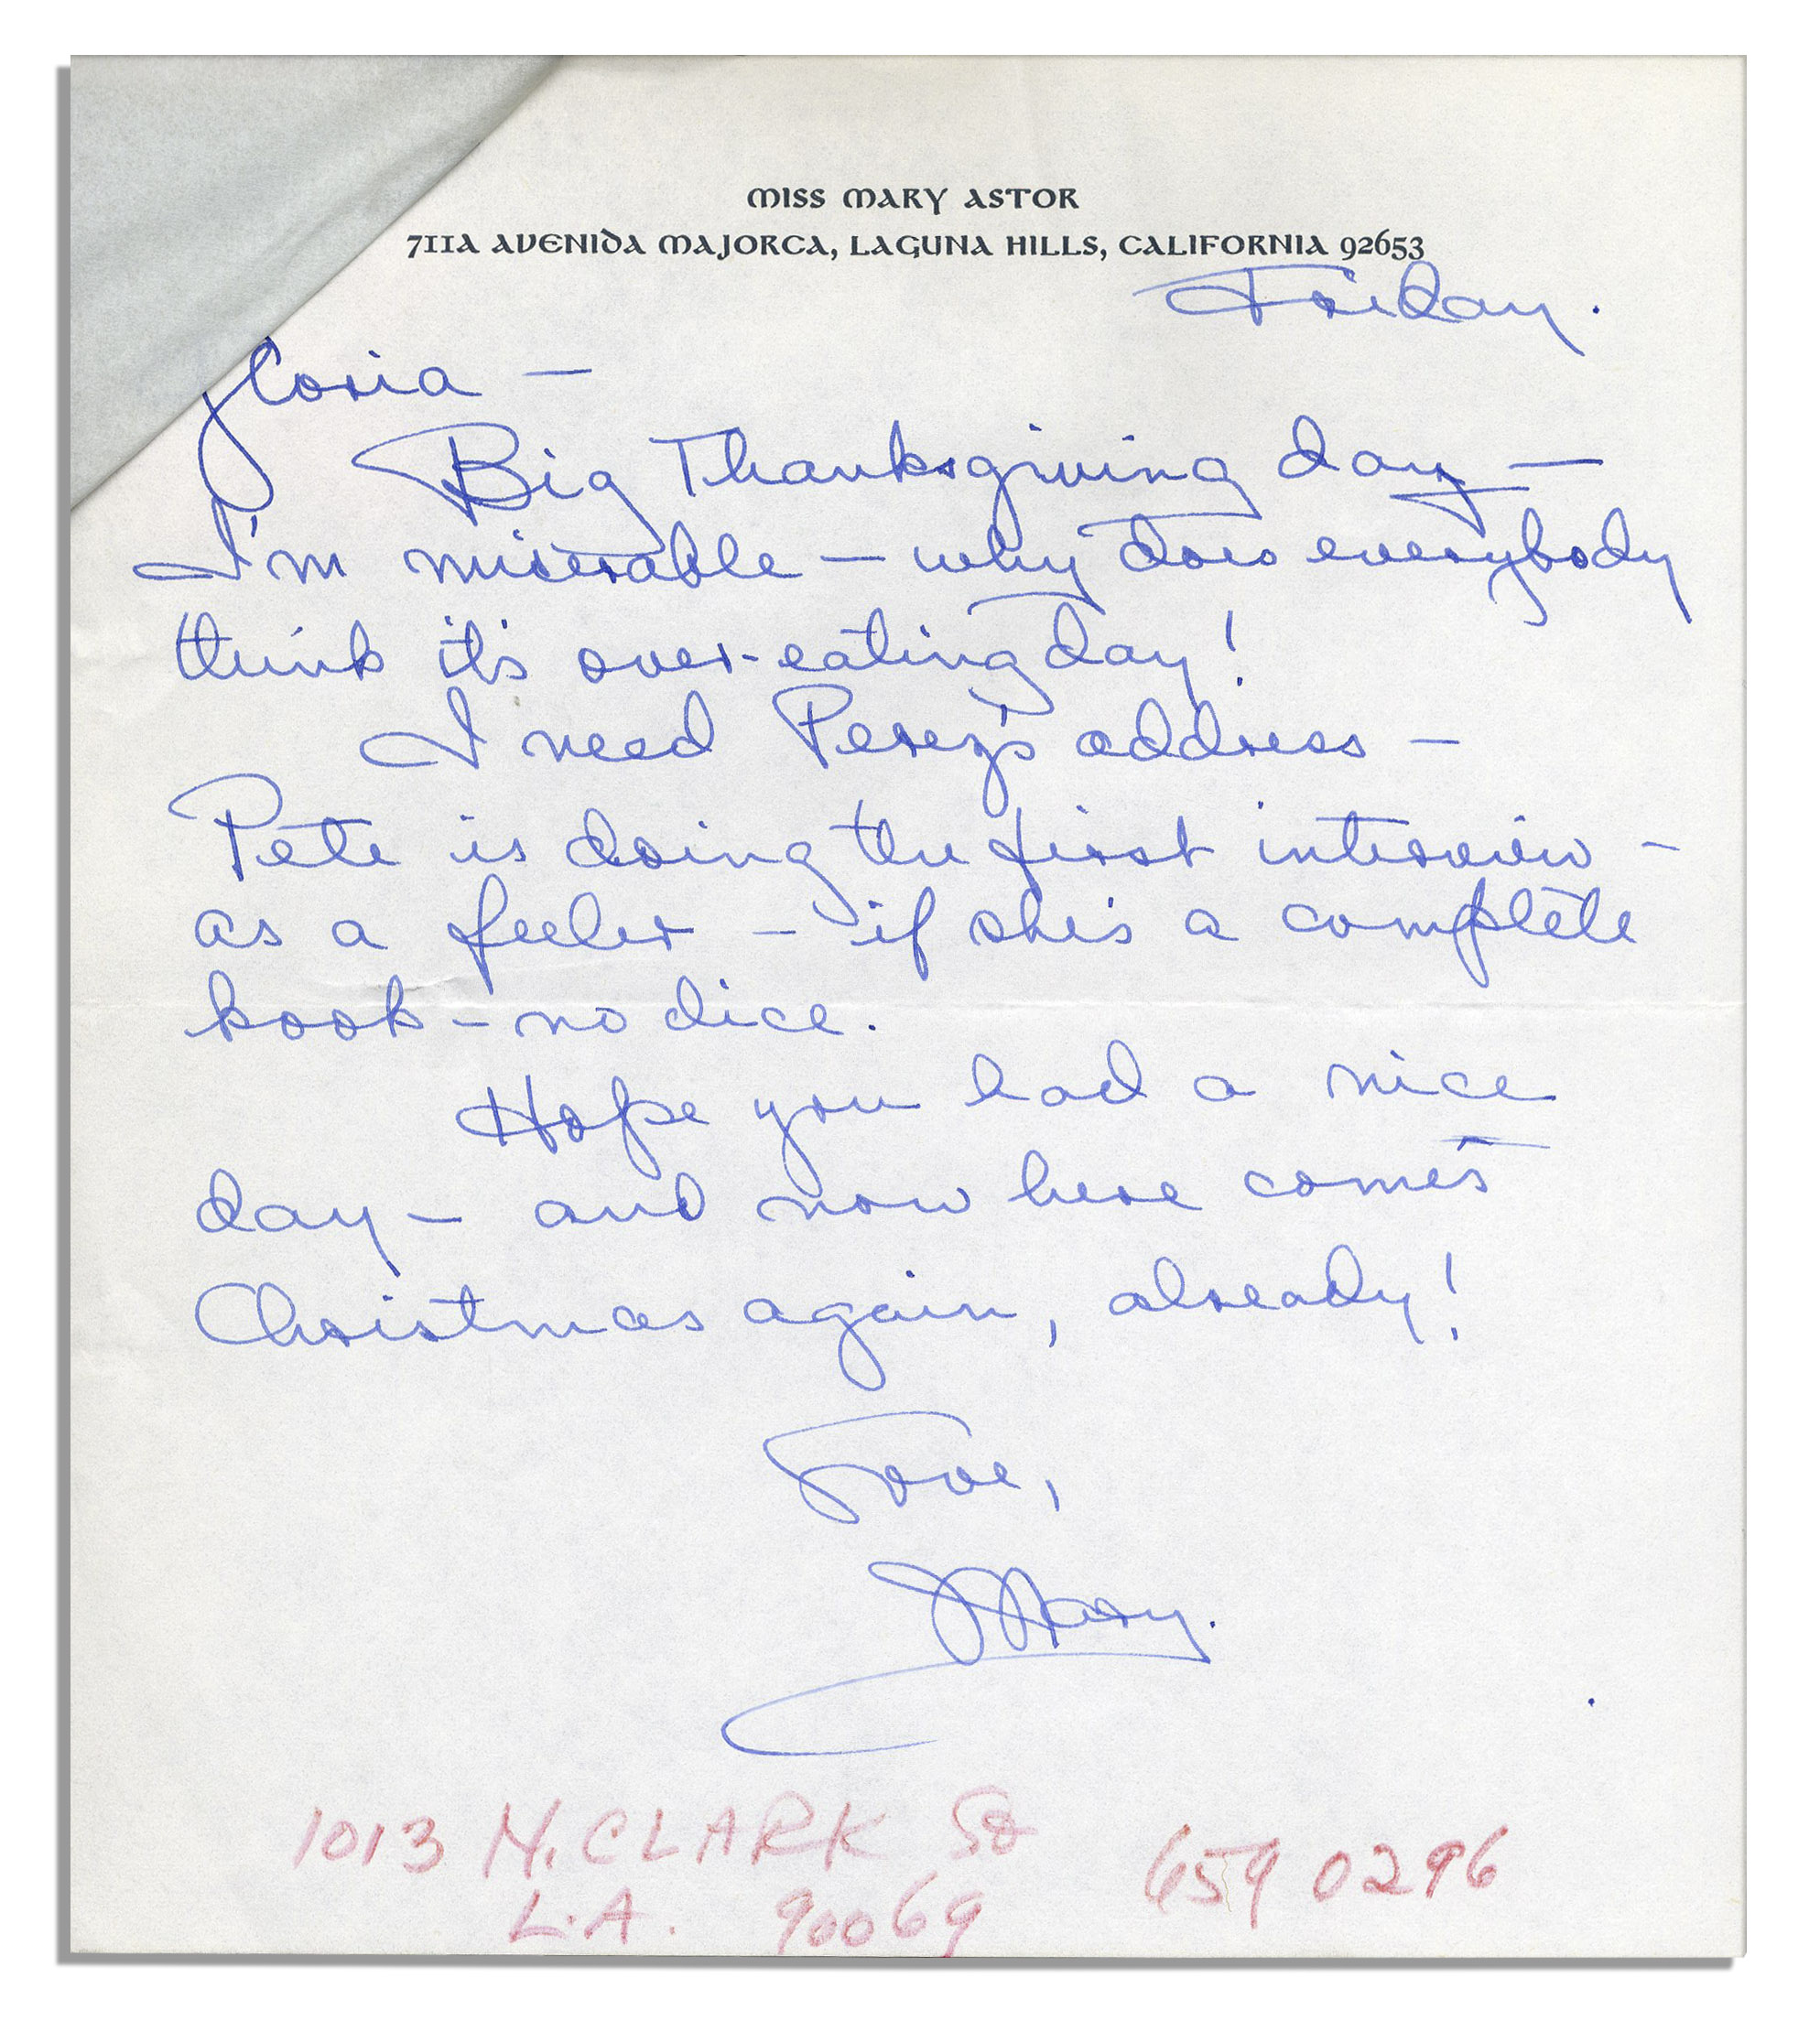 MISS MARY ASTOR
711A AVENIDA MAJORCA, LAGUNA HILLS, CALIFORNIA 92653
Friday.
Gloria —
Big Thanksgiving day —
I'm miserable — why does everybody
think it's over-eating day!
I need Perez's address —
Pete is doing the first interview -
as a feeler - if she's a complete
kook - no dice.
Hope you had a nice
day - and now here comes
Christmas again, already!
Love,
Mary.
1013 N. CLARK St 659 0296
L.A. 90069